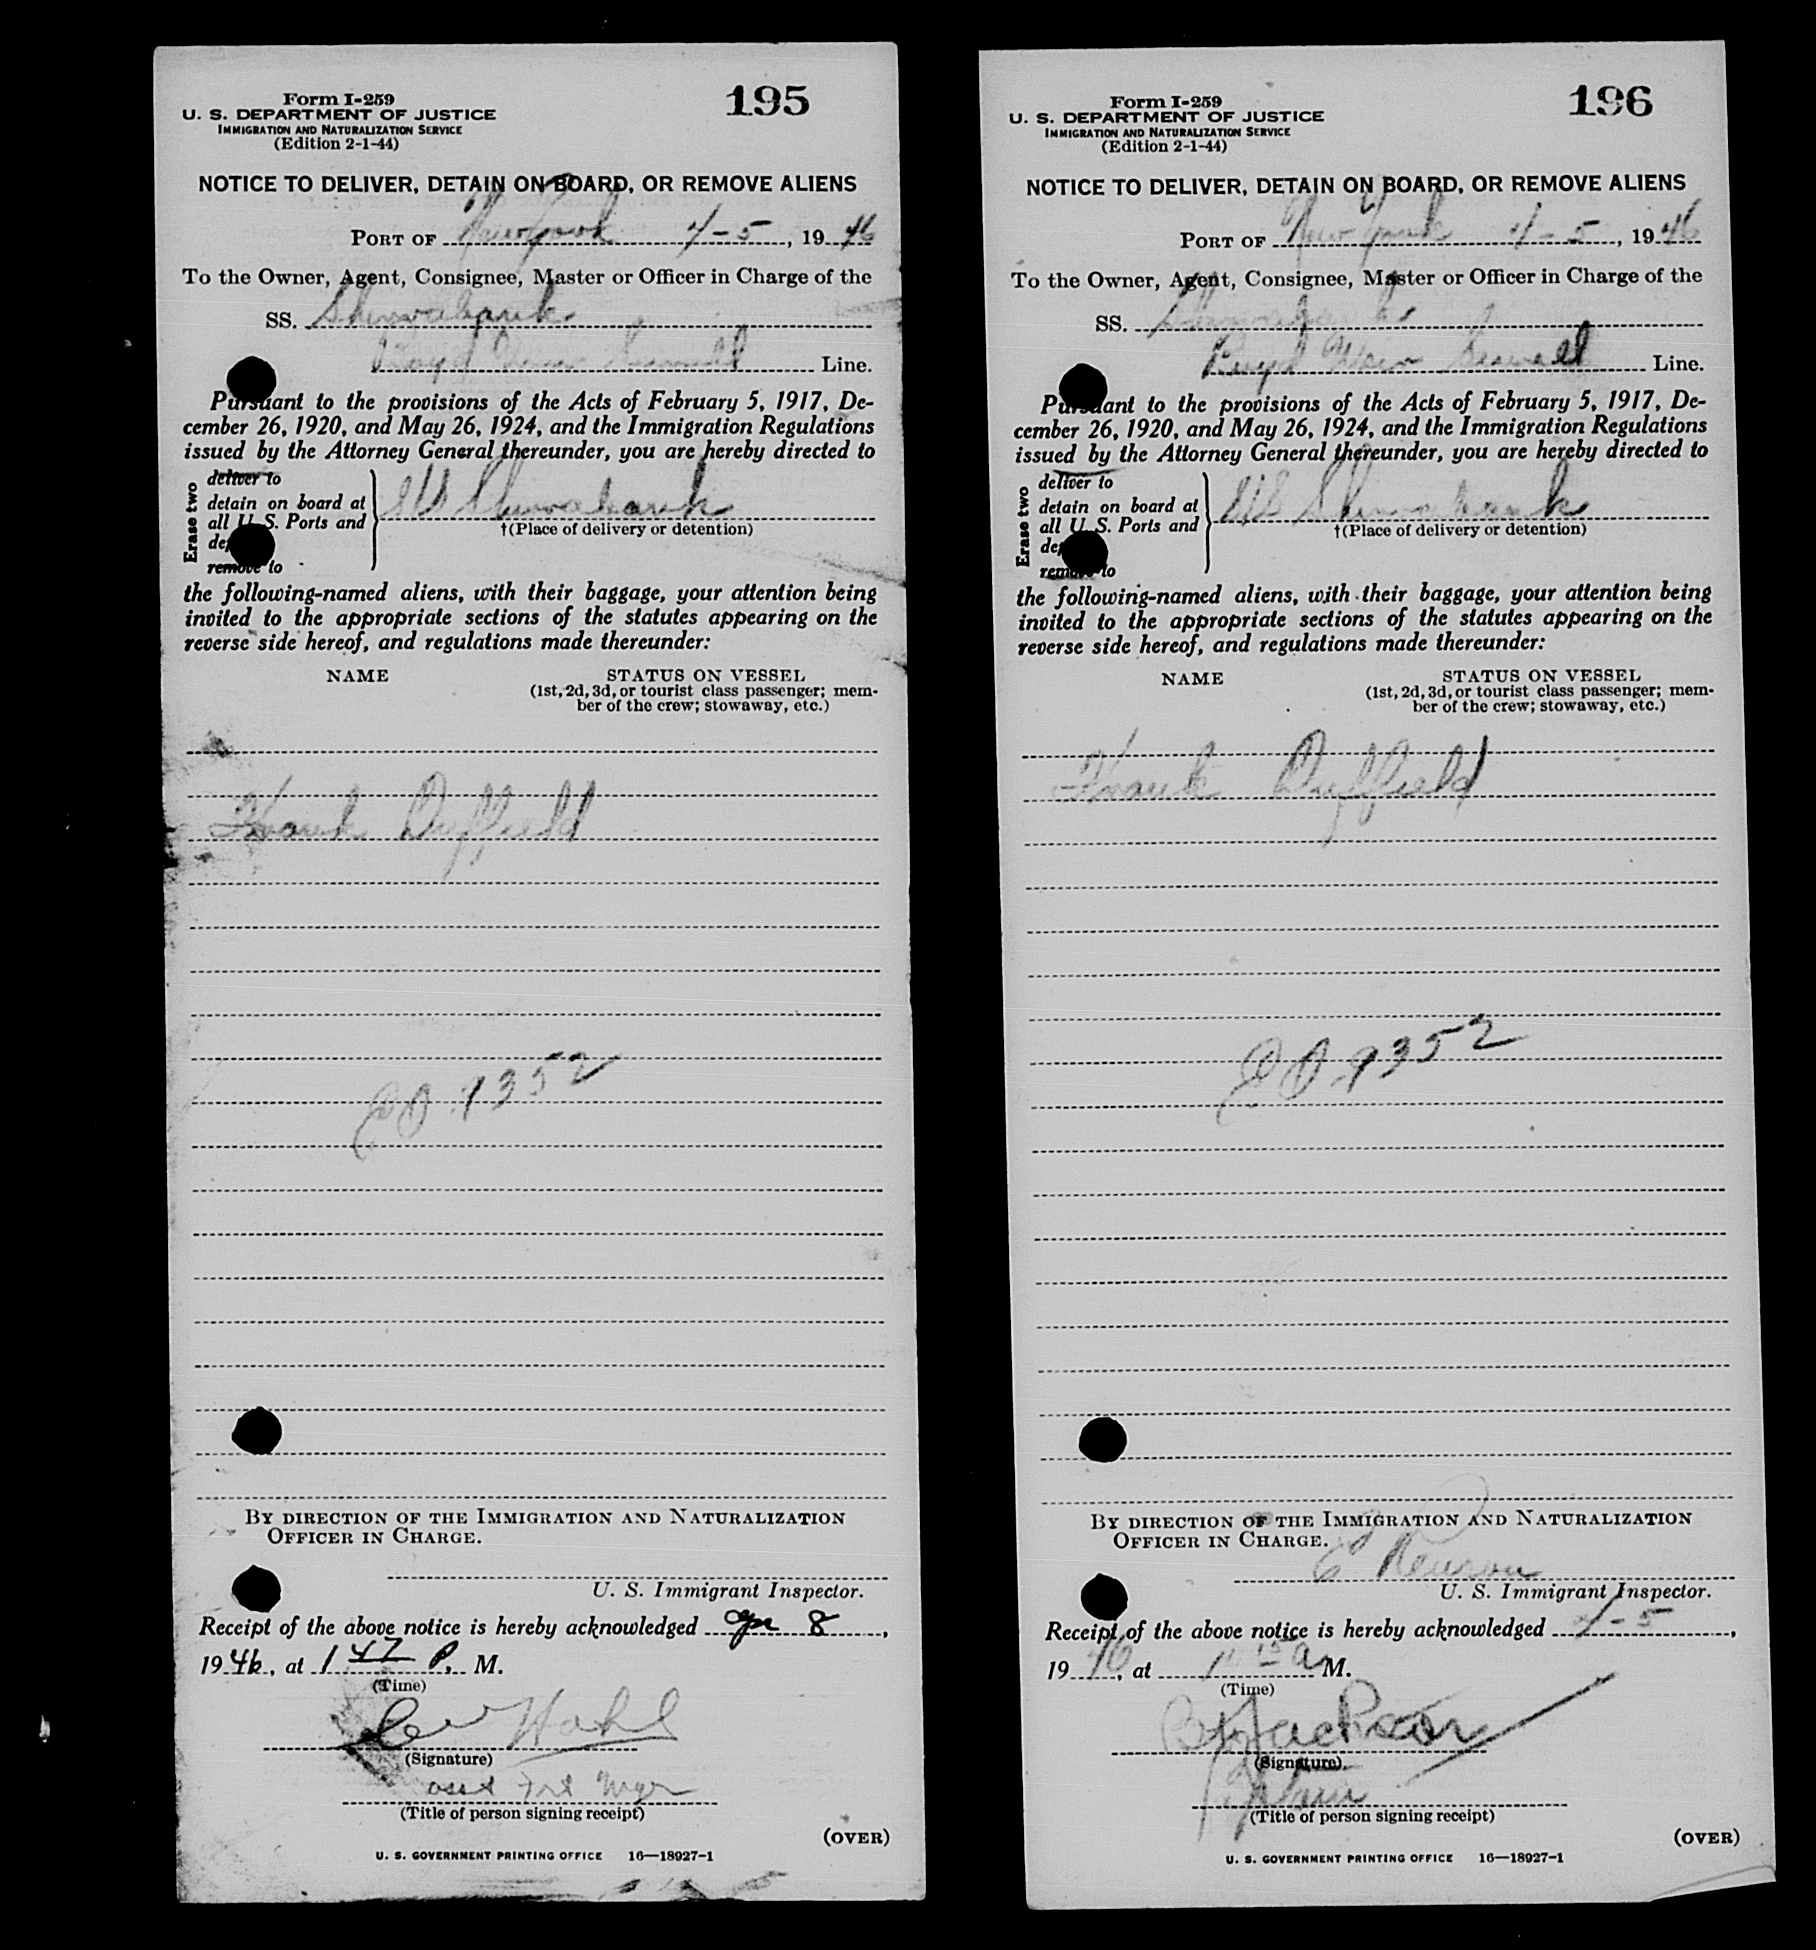 Form I-259
U. S. DEPARTMENT OF JUSTICE
IMMIGRATION AND NATURALIZATION SERVICE
(Edition 2-1-44)
195
NOTICE TO DELIVER, DETAIN ON BOARD, OR REMOVE ALIENS
PORT OF New York 4-5, 1946
To the Owner, Agent, Consignee, Master or Officer in Charge of the
SS. Shirrabank
Boyd Weir Sewell Line.
Pursuant to the provisions of the Acts of February 5, 1917, De-
cember 26, 1920, and May 26, 1924, and the Immigration Regulations
issued by the Attorney General thereunder, you are hereby directed to
Erase two
deliver to
detain on board at
all U. S. Ports and
remove to
SS Shirrabank
†(Place of delivery or detention)
the following-named aliens, with their baggage, your attention being
invited to the appropriate sections of the statutes appearing on the
reverse side hereof, and regulations made thereunder:
NAME
STATUS ON VESSEL
(1st, 2d, 3d, or tourist class passenger; mem-
ber of the crew; stowaway, etc.)
Frank Duffield
9352
BY DIRECTION OF THE IMMIGRATION AND NATURALIZATION
OFFICER IN CHARGE.
U. S. Immigrant Inspector.
Receipt of the above notice is hereby acknowledged Apr 8,
1946, at 1 47 P. M.
(Time)
(Signature)
Asst Frt Mgr
(Title of person signing receipt)
(OVER)
U. S. GOVERNMENT PRINTING OFFICE 16—18927-1
Form I-259
U. S. DEPARTMENT OF JUSTICE
IMMIGRATION AND NATURALIZATION SERVICE
(Edition 2-1-44)
196
NOTICE TO DELIVER, DETAIN ON BOARD, OR REMOVE ALIENS
PORT OF New York 4-5, 1946
To the Owner, Agent, Consignee, Master or Officer in Charge of the
SS. Shirrabank
Boyd Weir Sewell Line.
Pursuant to the provisions of the Acts of February 5, 1917, De-
cember 26, 1920, and May 26, 1924, and the Immigration Regulations
issued by the Attorney General thereunder, you are hereby directed to
Erase two
deliver to
detain on board at
all U. S. Ports and
remove to
SS Shirrabank
†(Place of delivery or detention)
the following-named aliens, with their baggage, your attention being
invited to the appropriate sections of the statutes appearing on the
reverse side hereof, and regulations made thereunder:
NAME
STATUS ON VESSEL
(1st, 2d, 3d, or tourist class passenger; mem-
ber of the crew; stowaway, etc.)
Frank Duffield
9352
BY DIRECTION OF THE IMMIGRATION AND NATURALIZATION
OFFICER IN CHARGE.
U. S. Immigrant Inspector.
Receipt of the above notice is hereby acknowledged 4-5,
1946, at 11 15 A M.
(Time)
Jackson
(Signature)
(Title of person signing receipt)
(OVER)
U. S. GOVERNMENT PRINTING OFFICE 16—18927-1